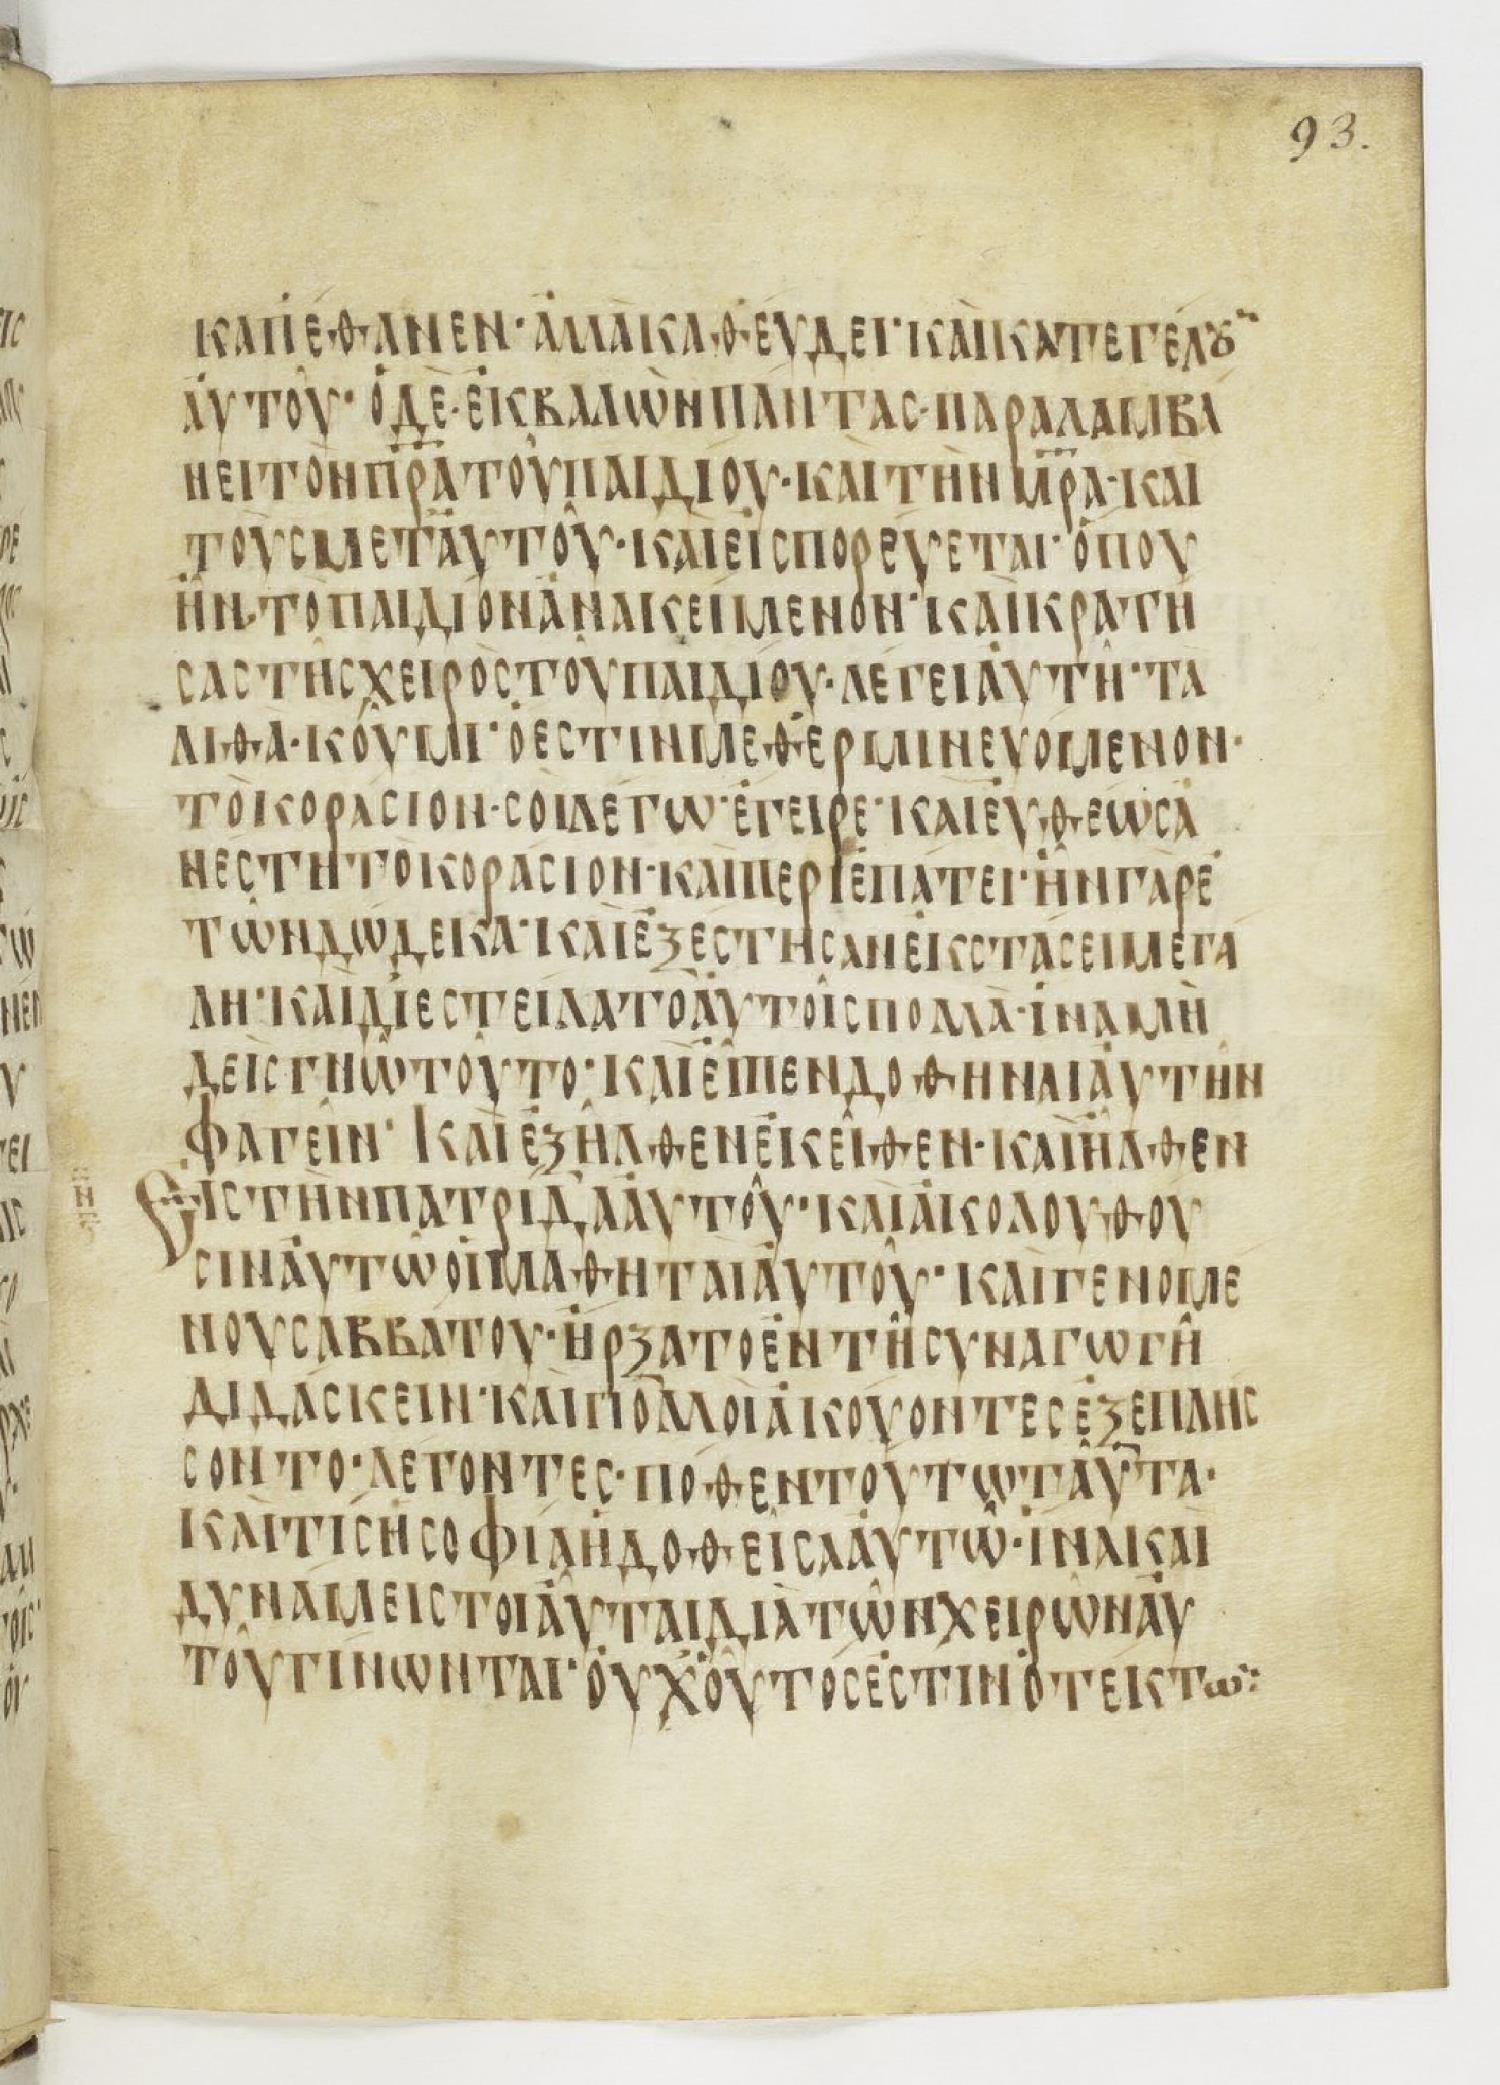 93.
κ ἀπέθανεν· ἀλλὰ καθεύδει· καὶ κατεγέλȣν
ἀυτοῦ· ὁ δὲ· ἐκβαλὼν πάντας· παραλαμβά
νει τὸν π̅ρ̅α̅ τοῦ παιδίου· καὶ τὴν μ̅ρ̅α̅· καὶ
τοὺς μετ ἀυτοῦ· καὶ εἰσπορεύεται· ὅπου
ἦν· τὸ παιδίον ἀνακείμενον· καὶ κρατή
σας τῆς χειρὸς τοῦ παιδίου· λέγει ἀυτῆ· τα
λιθὰ· κοῦμι· ὅ ἐστιν μεθερμηνευόμενον·
τὸ κοράσιον· σοὶ λέγω· ἔγειρε· καὶ ἐυθέως ἀ
νέστη τὸ κοράσιον· καὶ περιεπάτει· ἦν γὰρ ἐ
τῶν δώδεκα· καὶ ἐξέστησαν ἐκστάσει μεγά
λη· καὶ διεστείλατο ἀυτοῖς πολλὰ· ἵνα μη
δεὶς γνῶ τοῦτο· καὶ εἶπεν δοθῆναι ἀυτῆν
φαγεῖν· Καὶ ἐξῆλθεν ἐκεῖθεν· καὶ ἦλθεν
Εἰς τὴν πατρίδα ἀυτοῦ· καὶ ἀκολουθοῦ
σιν ἀυτῶ οἱ μαθηταὶ ἀυτοῦ· καὶ γενομέ
νου σαββάτου· ἤρξατο ἐν τῆ συναγωγῆ
διδάσκειν· καὶ πολλοὶ ἀκούοντες ἐξεπλήσ
σοντο· λέγοντες· πόθεν τούτω ταῦτα·
καὶ τίς ἡ σοφία ἡ δοθεῖσα ἀυτῶ· ἵνα καὶ
δυνάμεις τοιαῦται διὰ τῶν χειρῶν ἀυ
τοῦ γίνωνται· ὀυχ οὗτός ἐστιν ὁ τέκτων: